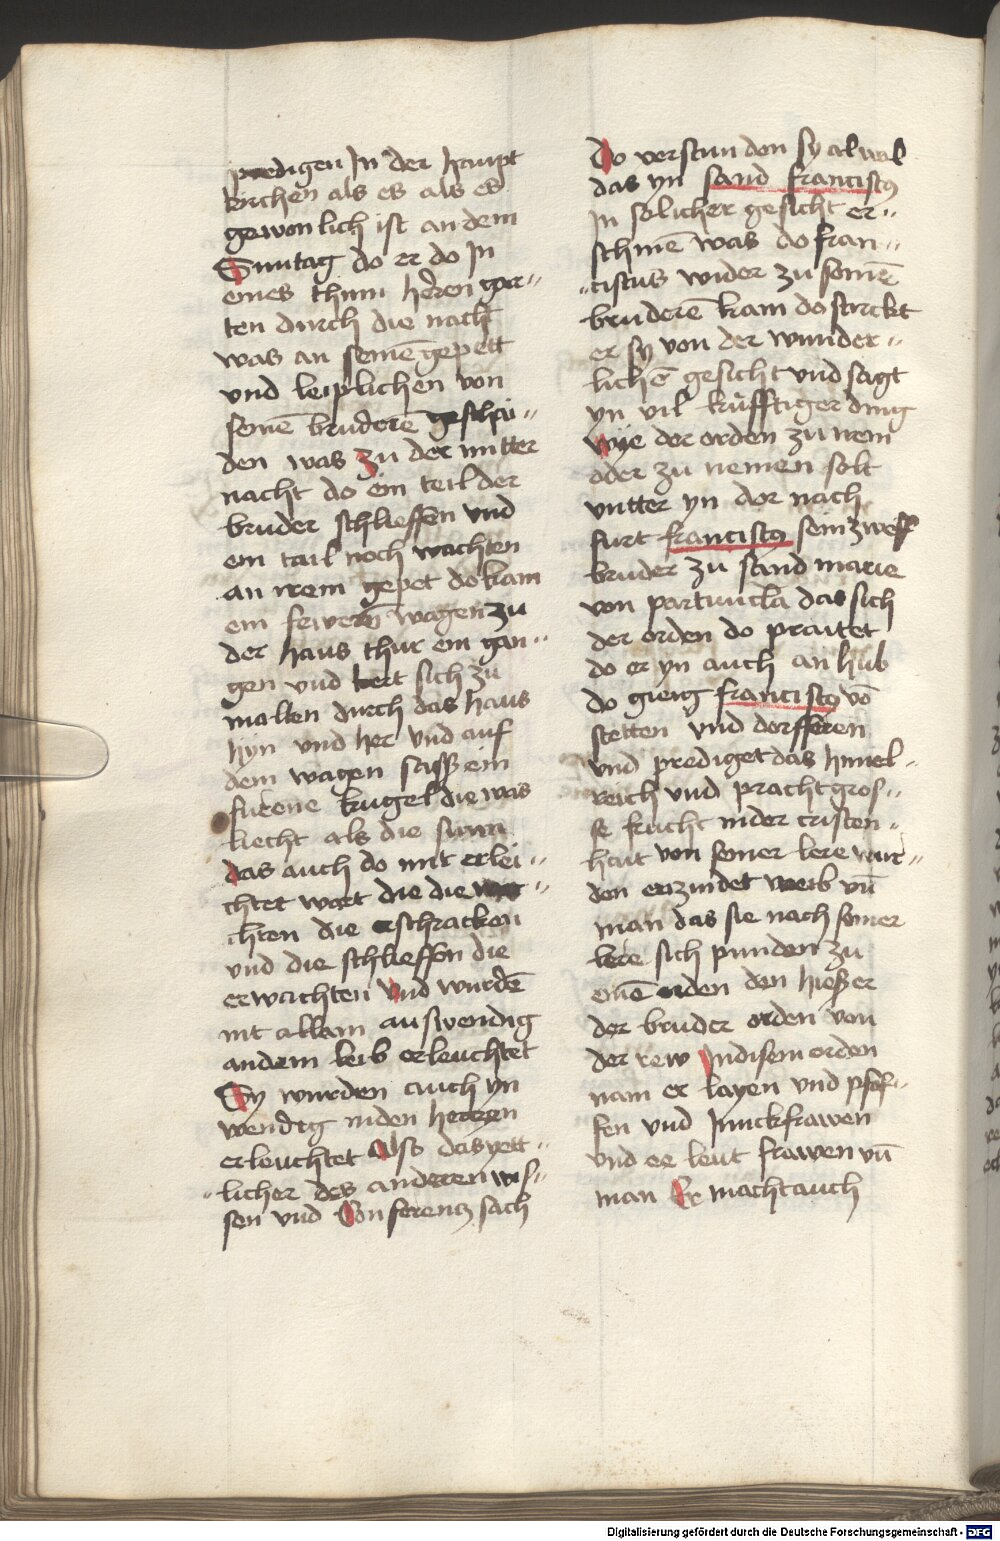 predigen In der haupt
kirchen als es als es
gewonlich ist an dem
Sunntag do er do In
eines thum herren gar=
ten durch die nacht
was an seinē gepett
vnd leiplichen von
seinē bruderē geschai=
den was zu der mitter
nacht do ein teil der
bruder schlieffen vnd
ein tail noch wachten
an irem gepet do kam
ein fewerin wagen zu
der haus thur ein gan=
gen vnd kert sich zu
malken durch das haus
hyn vnd her vnd auf
dem wagen sasß ein
fuirene kugel die was
liecht als die sunn
das auch do mit erlei=
chtet wart die die wa=
chten die erschracken
vnd die schlieffen die
erwachten vnd wurdē
nit allain auswendig
an dem leib erleuchtet
Sy wurden auch yn
wendig in den herczen
erleuchtet Alß das yett=
licher des anderen wis=
sen vnd Conserencz sach
Do verstunden sy al wol
das yn sand franciscꝰ
In solicher gesicht er=
schinē was do fran=
ciscus wider zu seinē
bruderē kam do starckt
er sy von der wunder=
lichē gesicht vnd sagt
yn vil kùfftiger ding
wye der orden zu nem
oder zu nemen solt
vntter yn dor nach
furt franciscꝰ sein zwelf
bruder zu sand marie
von partiuncla das sich
der orden do praitet
do er yn auch an hub
do gieng franciscꝰ vō
stetten vnd dorfferen
vnd prediget das himel=
reich vnd pracht gros=
se frucht in der cristen=
hait von seiner lere wur=
den enzindet weib vn̄
man das sie nach seiner
lere sich punden zu
einē orden den hieß er
der bruder orden von
der rew In disem orden
nam er layen vnd pfaf=
fen vnd Junckfrawen
vnd ee leut frawen vn̄
man Er macht auch
Digitalisierung gefördert durch die Deutsche Forschungsgemeinschaft - DFG